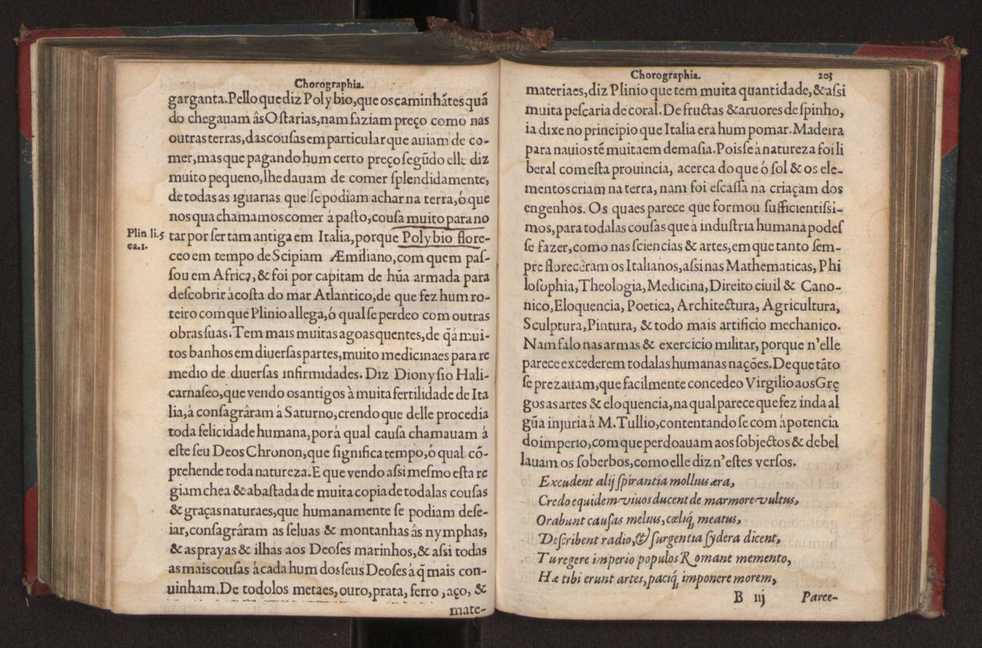 Chorographia.
garganta. Pello que diz Polybio, que os caminhãtes quã
do chegauam âs Ostarias, nam faziam preço como nas
outras terras, das cousas em particular que auiam de co-
mer, mas que pagando hum certo preço segũdo elle diz
muito pequeno, lhe dauam de comer splendidamente,
de todas as iguarias que se podiam achar na terra, ó que
nos qua chamamos comer à pasto, cousa muito para no
Plin. li. 5
ca. 1.
tar por ser tam antiga em Italia, porque Polybio flore-
ceo em tempo de Scipiam Æmiliano, com quem pas-
sou em Africa, & foi por capitam de hũa armada para
descobrir à costa do mar Atlantico, de que fez hum ro-
teiro com que Plinio allega, ó qual se perdeo com outras
obras suas. Tem mais muitas agoas quentes, de q̃ â mui-
tos banhos em diuersas partes, muito medicinaes para re
medio de diuersas infirmidades. Diz Dionysio Hali-
carnaseo, que vendo os antigos à muita fertilidade de Ita
lia, à consagràram à Saturno, crendo que delle procedia
toda felicidade humana, por à qual causa chamauam à
este seu Deos Chronon, que significa tempo, ó qual cõ-
prehende toda natureza. E que vendo assi mesmo esta re
giam chea & abastada de muita copia de todalas cousas
& graças naturaes, que humanamente se podiam dese-
iar, consagràram as seluas & montanhas âs nymphas,
& as prayas & ilhas aos Deoses marinhos, & assi todas
as mais cousas à cada hum dos seus Deoses à q̃ mais con-
uinham. De todolos metaes, ouro, prata, ferro, aço, &
mate-
Chorographia. 203
materiaes, diz Plinio que tem muita quantidade, & assi
muita pescaria de coral. De fructas & aruores de spinho,
ia dixe no principio que Italia era hum pomar. Madeira
para nauios tẽ muita em demasia. Pois se à natureza foi li
beral com esta prouincia, acerca do que ó sol & os ele-
mentos criam na terra, nam foi escassa na criaçam dos
engenhos. Os quaes parece que formou sufficientissi-
mos, para todalas cousas que à industria humana podes
se fazer, como nas sciencias & artes, em que tanto sem-
pre florecèram os Italianos, assi nas Mathematicas, Phi
losophia, Theologia, Medicina, Direito ciuil & Cano-
nico, Eloquencia, Poetica, Architectura, Agricultura,
Sculptura, Pintura, & todo mais artificio mechanico.
Nam falo nas armas & exercicio militar, porque n'elle
parece excederem todalas humanas nações. De que tãto
se prezauam, que facilmente concedeo Virgilio aos Gre
gos as artes & eloquencia, na qual parece que fez inda al
gũa injuria à M. Tullio, contentando se com à potencia
do imperio, com que perdoauam aos sobjectos & debel
lauam os soberbos, como elle diz n'estes versos.
Excudent alij spirantia mollius æra,
Credo equidem viuos ducent de marmore vultus,
Orabunt causas melius, cœliq; meatus,
Describent radio, & surgentia sydera dicent,
Tu regere imperio populos Romane memento,
Hæ tibi erunt artes, paciq; imponere morem,
B iij Parce-